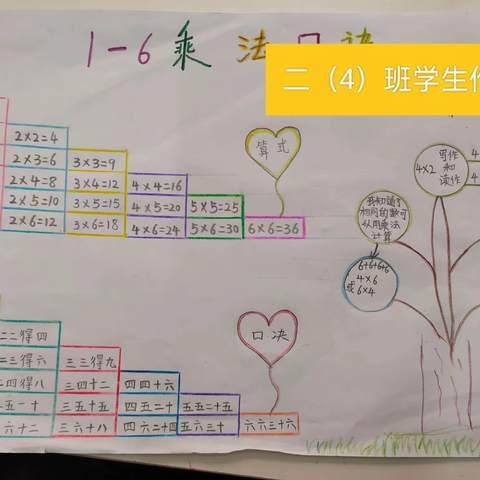 1-6乘法口诀
二（4）班学生作
2×2=4
2×3=6 3×3=9
2×4=8 3×4=12 4×4=16
2×5=10 3×5=15 4×5=20 5×5=25
2×6=12 3×6=18 4×6=24 5×6=30 6×6=36
算式
写作
4×2 和
读作
我知道了
相同的数可
以用乘法
计算
6+6+6+6
4×6
或6×4
口决
二二得四
二三得六 三三得九
二四得八 三四十二 四四十六
二五一十 三五十五 四五二十 五五二十五
六十二 三六十八 四六二十四 五六三十 六六三十六